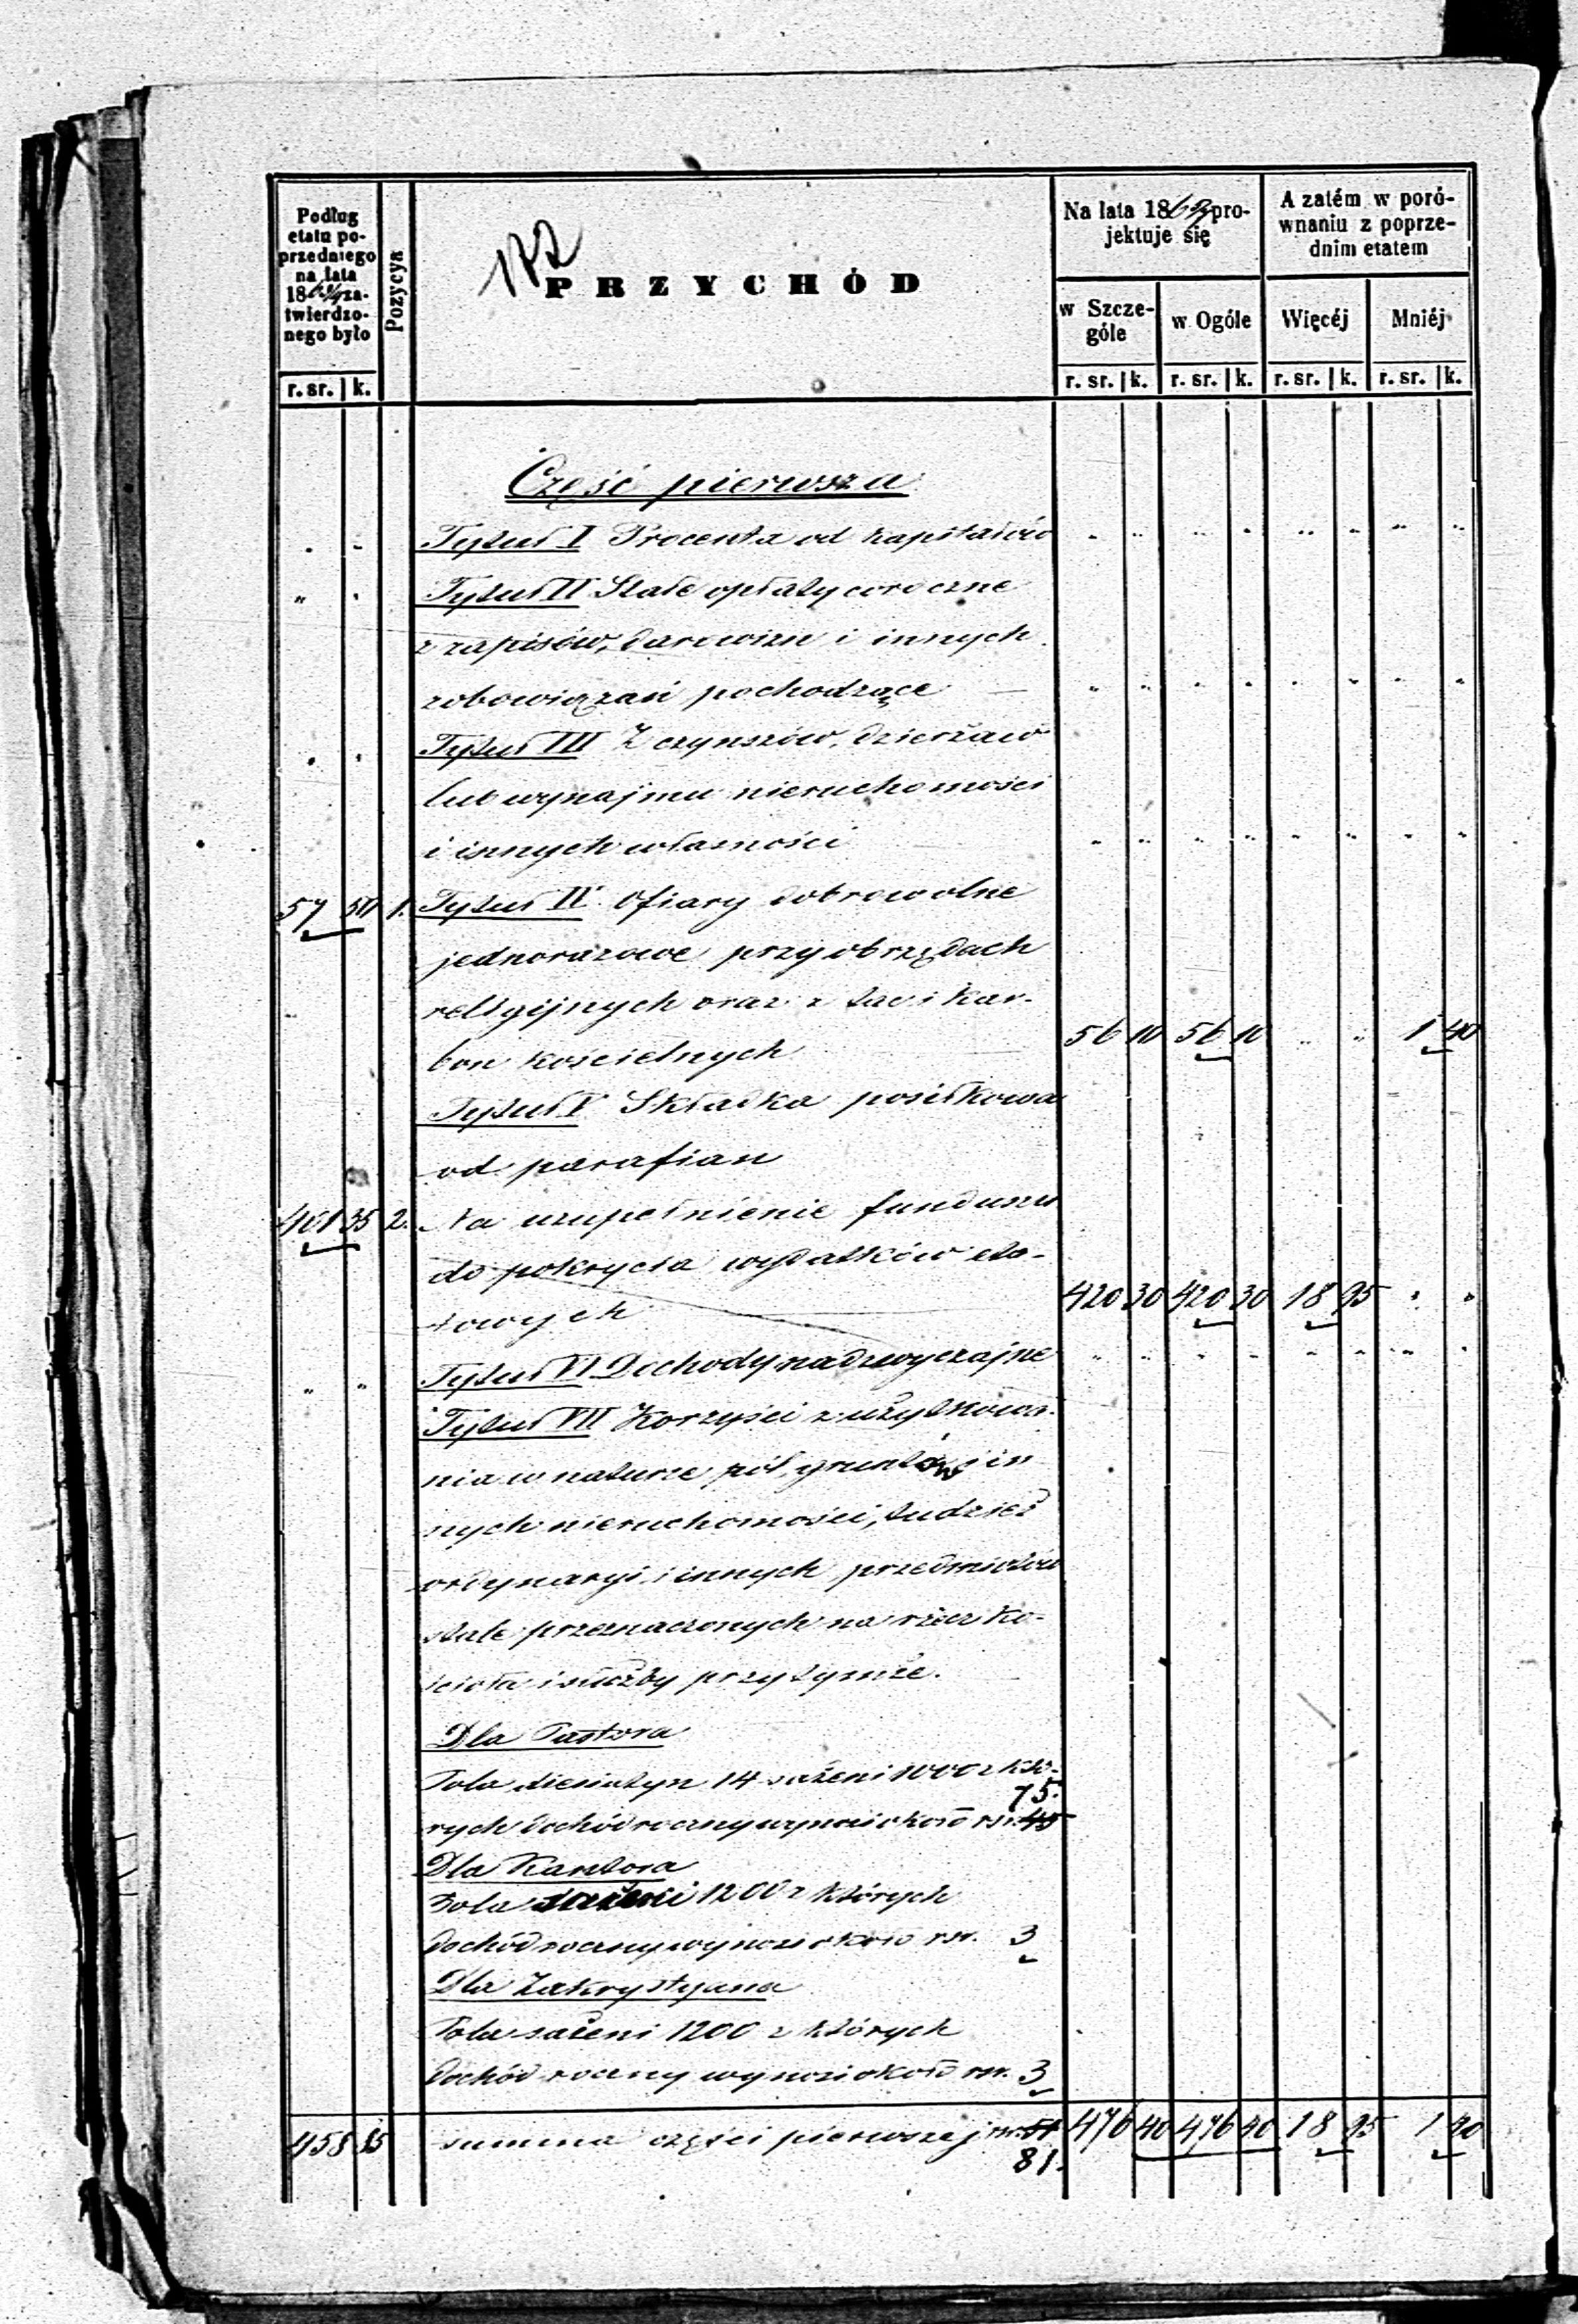 Podług
etatu po-
przedniego
na lata
186 za-
twierdzo-
nego było
r. sr. k.
Pozycya
PRZYCHÓD
Na lata 186 pro-
jektuje się
w Szcze-
góle
w Ogóle
r. sr. k. r. sr. k.
A zatém w poró-
wnaniu z poprze-
dnim etatem
Więcéj Mniéj
r. sr. k. r. sr. k.
Część pierwsza
Tytuł I Procenta od kapitałów
Tytuł II Stałe opłaty coroczne
z zapisów, darowizn i innych
zobowiązań pochodzące
Tytuł III Z czynszów, dzierżaw
lub wynajmu nieruchomości
i innych własności
57 50 1. Tytuł IV Ofiary dobrowolne
jednorazowe przy obrzędach
religijnych oraz z tac i kar-
bon kościelnych 56 10 56 10 1 40
Tytuł V Składka posiłkowa
od parafian
401 35 2. Na uzupełnienie funduszu
do pokrycia wydatków eta-
towych 420 30 420 30 18 95
Tytuł VI Dochody nadzwyczajne
Tytuł VII Korzyści z użytkowa-
nia w naturze pól, gruntów i in
nych nieruchomości, tudzież
ordynaryi i innych przedmiotów
stale przeznaczonych na rzecz ko-
ścioła i służby przy tymże.
Dla Pastora
Pola diesiatyn 14 sażeni 1000 z któ-
75.
rych dochód roczny wynosi około rsr. 45
Dla Kantora
Pola sażeni 1200 z których
dochód roczny wynosi około rsr. 3
Dla Zakrystyana
Pola sażeni 1200 z których
dochód roczny wynosi około rsr. 3
458 85 summa części pierwszej rsr. 51 476 40 476 40 18 95 1 40
81.